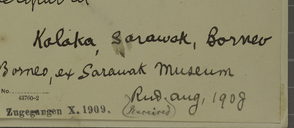 Kalaka, Sarawak, Borneo
Borneo, ex Sarawak Museum
Rud. Aug, 1908
No.
43760-2
Zugegangen X. 1909. (Received)